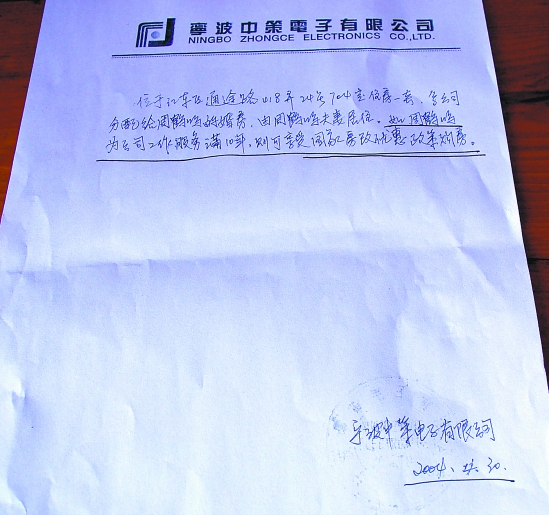 寧波中策電子有限公司
NINGBO ZHONGCE ELECTRONICS CO.,LTD.
位于江东区通途路418弄24号704室住房一套,
分配给周鹤鸣的婚房,由周鹤鸣夫妻居住。如周鹤鸣
为公司工作服务满10年,则可享受国家房改优惠政策购房。
宁波中策电子有限公司
2004.4.30.